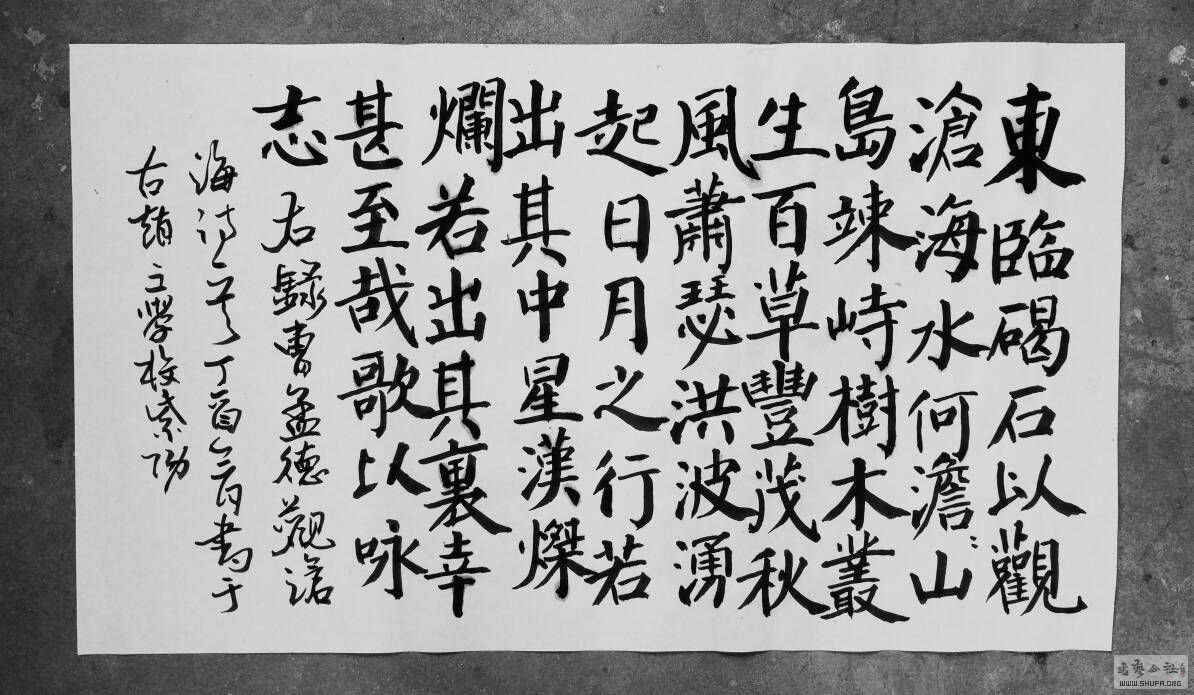 東臨碣石以觀
滄海水何澹〻山
島竦峙樹木叢
生百草豐茂秋
風蕭瑟洪波湧
起日月之行若
出其中星漢燦
爛若出其裏幸
甚至哉歌以咏
志 右録曹孟德觀滄
海诗一首丁酉月書于
古趙
書藝公社
WWW.SHUFA.ORG